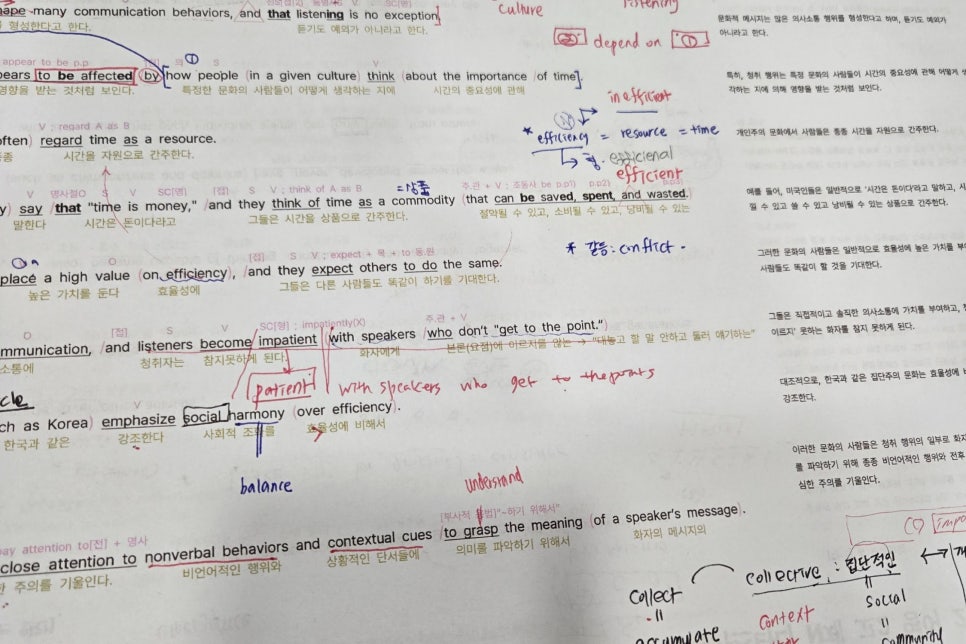 culture
listening
hape many communication behaviors, and that listening is no exception]
를 형성한다고 한다.
듣기도 예외가 아니라고 한다.
문화적 메시지는 많은 의사소통 행위를 형성한다고 하며, 듣기도 예외가
아니라고 한다.
② depend on ①
appear to be p.p
pears to be affected by [how people (in a given culture) think (about the importance /of time].
영향을 받는 것처럼 보인다.
특정한 문화의 사람들이 어떻게 생각하는 지에
시간의 중요성에 관해
특히, 청취 행위는 특정 문화의 사람들이 시간의 중요성에 관해 어떻게 생
각하는 지에 의해 영향을 받는 것처럼 보인다.
inefficient
* efficiency = resource = time
efficienal
efficient
V ; regard A as B
often) regard time as a resource.
시간을 자원으로 간주한다.
개인주의 문화에서 사람들은 종종 시간을 자원으로 간주한다.
V 명사절O S V SC(명) [접] S V ; think of A as B
= 상품
주.관 + V ; 조동사 be p.p1) p.p2) p.p3)
y) say /that "time is money," /and they think of time as a commodity (that can be saved, spent, and wasted.
말한다
시간은 돈이다라고
그들은 시간을 상품으로 간주한다.
절약될 수 있고, 소비될 수 있고, 낭비될 수 있는
예를 들어, 미국인들은 일반적으로 '시간은 돈이다'라고 말하고, 시
될 수 있고 쓸 수 있고 낭비될 수 있는 상품으로 간주한다.
* 갈등 : conflict
O [접] S V ; expect + 목 + to 동.원
place a high value (on efficiency), /and they expect others to do the same.
높은 가치를 둔다
효율성에
그들은 다른 사람들도 똑같이 하기를 기대한다.
그러한 문화의 사람들은 일반적으로 효율성에 높은 가치를 부여
사람들도 똑같이 할 것을 기대한다.
O [접] S V SC[형] ; impatiently(X) 주.관 + V
mmunication, /and listeners become impatient (with speakers /who don't "get to the point.")
소통에
청취자는
참지못하게 된다
화자에게
본론(요점)에 이르지을 않는 → "대놓고 할 말 안하고 둘러 얘기하는"
그들은 직접적이고 솔직한 의사소통에 가치를 부여하고,
이르지' 못하는 화자를 참지 못하게 된다.
patient with speakers who get to the points
V
ch as Korea) emphasize social harmony (over efficiency).
한국과 같은
강조한다
사회적 조화를
효율성에 비해서
대조적으로, 한국과 같은 집단주의 문화는 효율성에 비
강조한다.
balance
understand
이러한 문화의 사람들은 청취 행위의 일부로 화자
를 파악하기 위해 종종 비언어적인 행위와 전후
심한 주의를 기울인다.
pay attention to[전] + 명사
[부사적 용법]"~하기 위해서"
close attention to nonverbal behaviors and contextual cues /to grasp the meaning (of a speaker's message).
한 주의를 기울인다.
비언어적인 행위와
상황적인 단서들에
의미를 파악하기 위해서
화자의 메시지의
collect
collective : 집단적인
social
context
accumulate
community